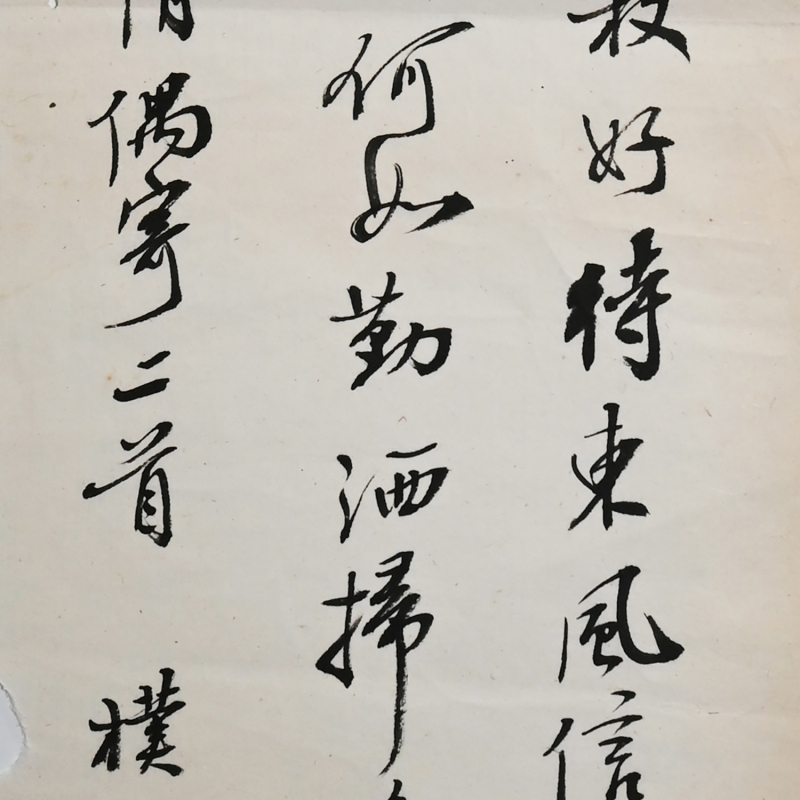 好待東風信
何如勤洒掃
偶寄二首 樸